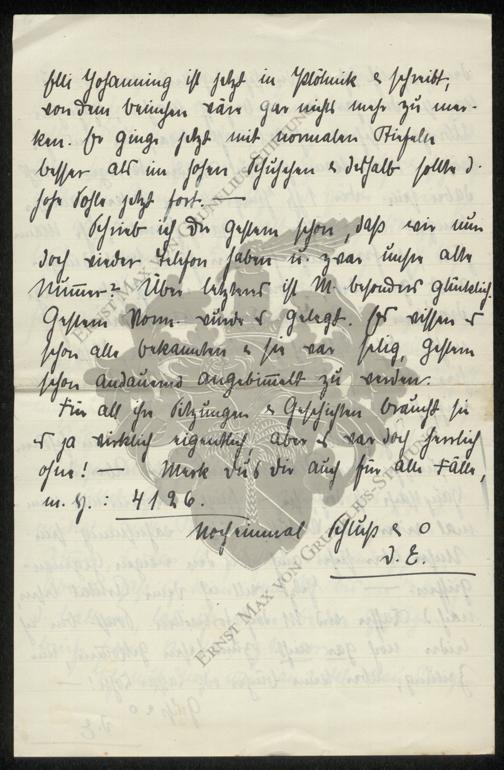 Elli Johanning ist jetzt in & schreibt,
von dem beinchen wäre gar nichts mehr zu mer-
ken. Er ginge jetzt mit normalen Stiefeln
besser als im hohen Schuhchen & deshalb sollte d.
hohe Sohle jetzt fort. —
Schrieb ich Dir gestern schon, daß wir nun
doch wieder Telefon haben u. zwar unsre alte
Nummer? Über letzteres ist M. besonders glücklich.
Gestern Vorm. wurde es gelegt. Es wissen es
schon alle bekannten & sie war selig, gestern
schon andauernd angebimmelt zu werden.
Für all ihre Sitzungen & Geschichten braucht sie
es ja wirklich eigentlich, aber es war doch herrlich
ohne! — Merk Du's Dir auch für alle Fälle,
m. H.: 4126.
Noch einmal Schluß & o
D. E.
ERNST MAX VON GRUNELIUS-STIFTUNG
ERNST MAX VON GRUNELIUS-STIFTUNG